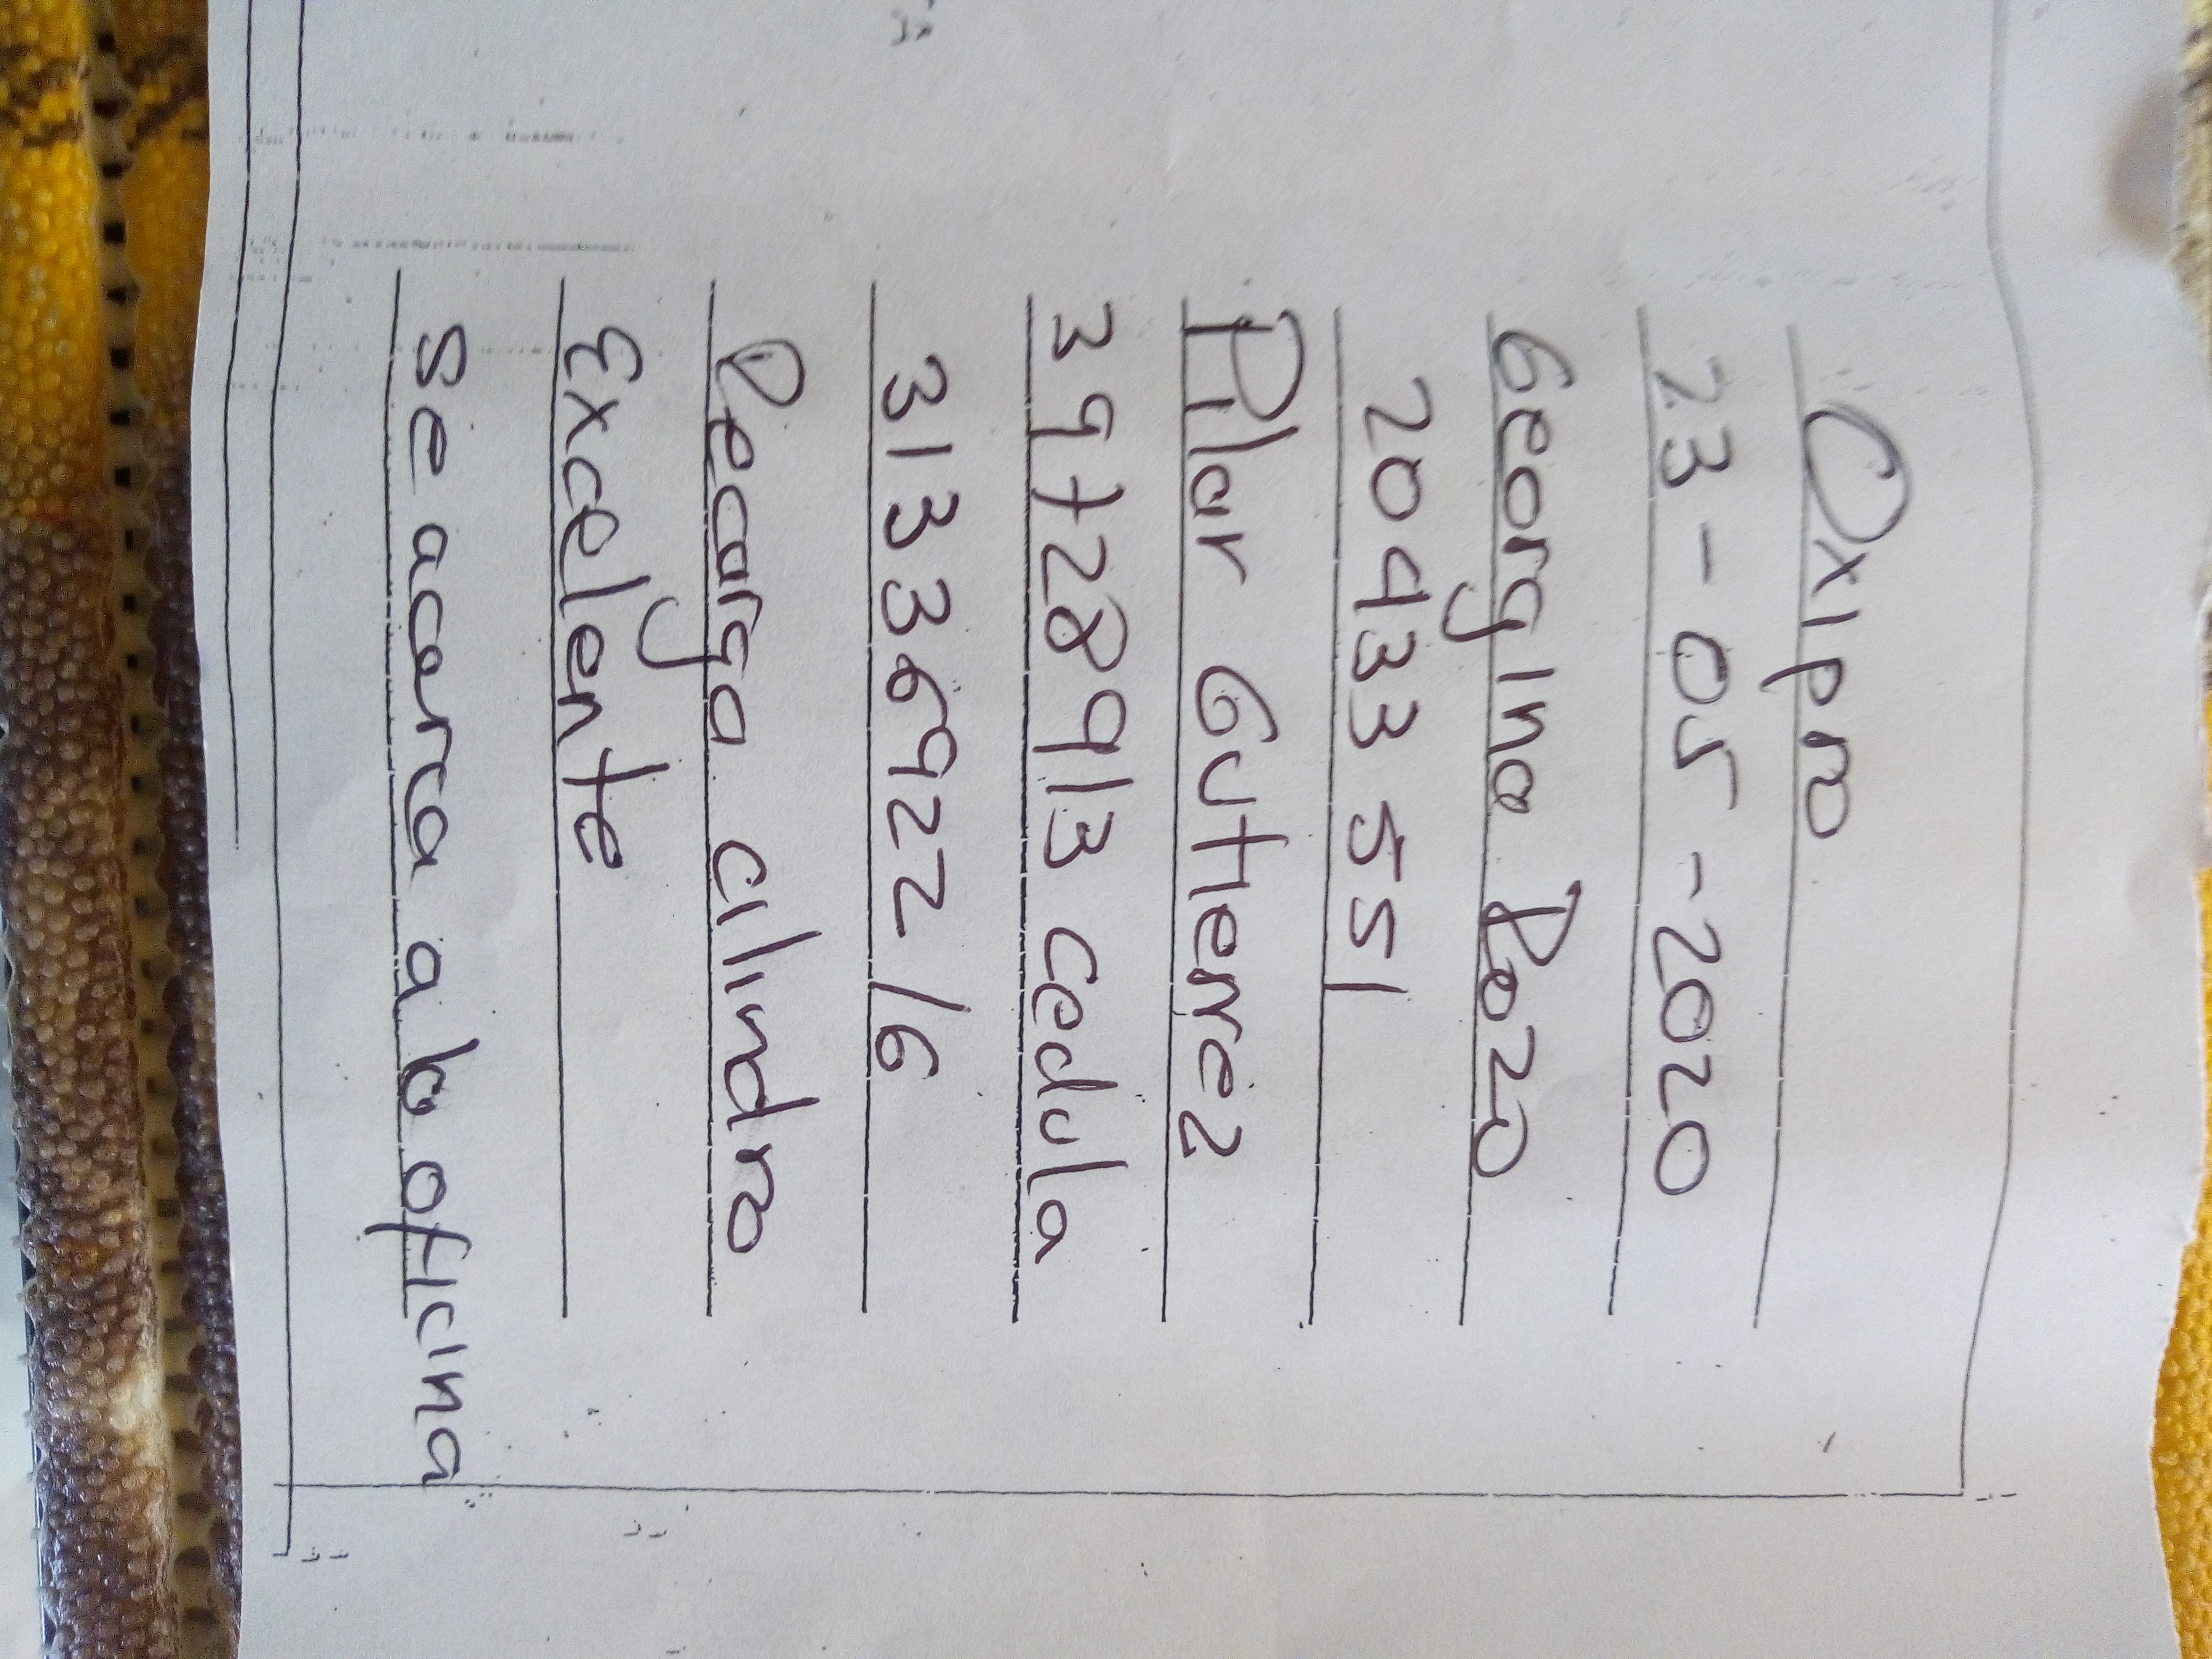 Oxipro
23-05-2020
Georgina Pozo
20433 551
Pilar Gutierrez
39728913 cedula
313336922/6
Recarga cilindro
Excelente
se acerca a la oficina